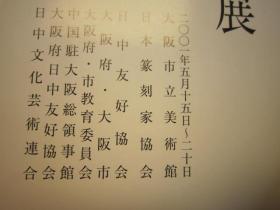 展
二〇〇一年五月十五日～二十日
大阪市立美術館
日本篆刻家協会
日中友好協会
大阪府・大阪市
大阪府・市教育委員会
中国駐大阪総領事館
大阪府日中友好協会
日中文化芸術連合